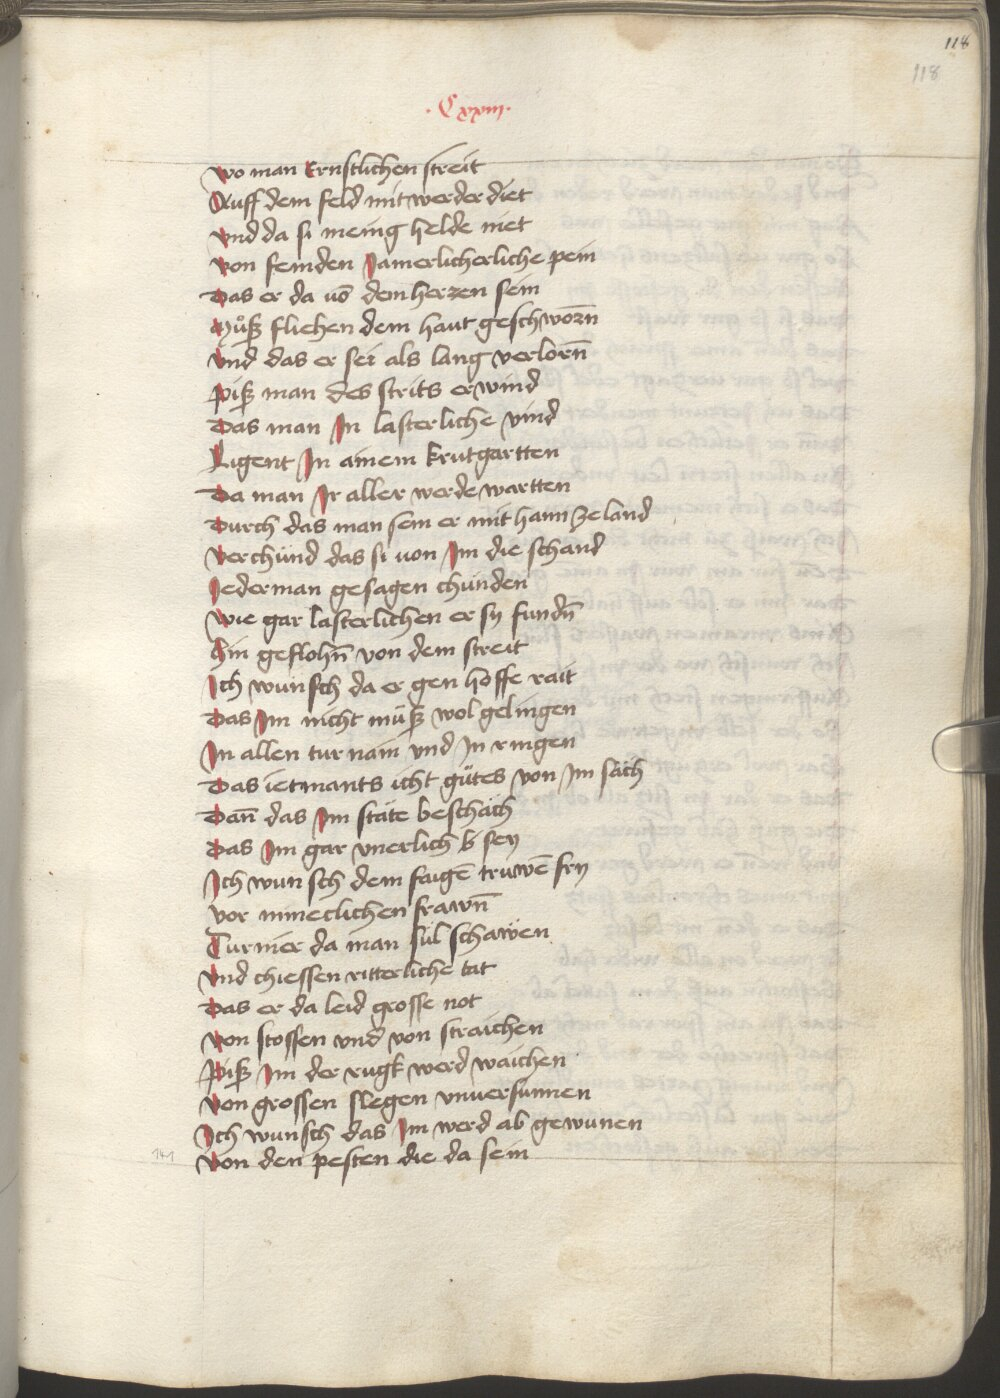 118
118
· Cxxiii ·
wo man Ernstlichen streit
Auff dem feld mit werder diet
vnd da si menig helde niet
von feinden Jamerlicherliche pein
Das er da uō dem herzen sein
Můß fliehen dem haut geschworn̄
vnd das er sei als lang verlorn̄
piß man des strits erwind
Das man In lasterliche vind
Ligent In ainem krutgartten
Da man Ir aller werde wartten
Durch das man sein er mit hann ze land
verchünd das si uon Im die schand
Jederman gesagen chünden
wie gar lasterlichen er sy fundn̄
hin geflohn̄ von dem streit
Ich wünsch da er gen hoffe rait
Das Im nicht müß wol gelingen
In allen turnain vnd In ringen
Das ietmants icht gůtes von Im säch
Dan̄ das Im stäte beschäch
Das Im gar vnerlich sey
Ich wunsch dem faigē truwē fry
vor mineclichen frawn̄
Turnier da man sül schawen
vnd chiessen ritterliche tat
Das er da leid grosse not
von stossen vnd von straichen
piß Im der rugk werd waichen
von grossen slegen vnuersunnen
Ich wunsch das Im werd ab gewunen
von den pesten die da sein
141